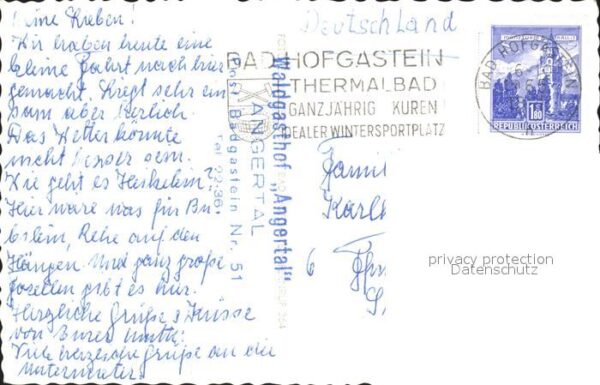 Meine Lieben!
Wir haben heute eine
kleine Fahrt nach hier
gemacht. Liegt sehr ein
sam aber herrlich.
Das Wetter könnte
nicht besser sein.
Wie geht es
Hier wäre was für Bu
Rehe auf den
Hängen. Und ganz große
Forellen gibt es hier.
Herzliche Grüße & Küsse
von Eurer Mutti.
Viele herzliche Grüße an die
Deutschland
BAD HOFGASTEIN
THERMALBAD
GANZJÄHRIG KUREN
IDEALER WINTERSPORTPLATZ
BAD HOFGASTEIN
1.80
REPUBLIK ÖSTERREICH
Waldgasthof „Angertal"
ANGERTAL
Post Badgastein Nr. 51
Tel. 22-36
Fami
Karl
6
privacy protection
Datenschutz